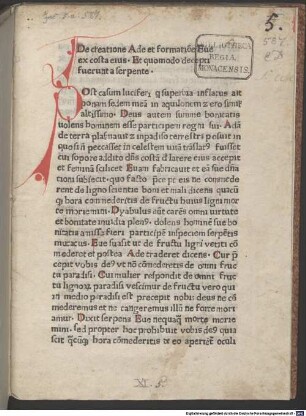 5.
BIBLIOTHECA
REGIA
MONACENSIS.
De creatione Ade et formatiõe Eue
ex costa eius. Et quomodo decepti
fuerunt a serpente.
Post casum luciferi q superbia inflatus ait
ponam sedem meã in aquilonem et ero similis
altissimo. Deus autem summe bonitatis
uolens hominem esse participem regni sui. Adã
de terra plasmauit et in padiso terrestri posuit in
quo si nõ peccasset in celestem uitã trãslatus fuisset
cui sopore addito dñs costã de latere eius accepit
et feminã scilicet Euam fabricauit et eã sue dñã
tioni subiecit. quo facto precepit eis ne comede
rent de ligno scientie boni et mali dicens quacũ
q hora comederitis de fructu huius ligni mor
te moriemini. Dyabulus aũt carẽs omni uirtute
et bonitate inuidia plenus. dolens hominẽ sue bo
nitatis amisse fieri participẽ in speciem serpẽtis
mutatus. Eue suasit ut de fructu ligni uetiti cõ
mederet et postea Ade traderet dicens. Cur p
cepit uobis deus ut nõ cõmederetis de omni fruc
tu paradisi. Cui mulier respondit de omni fruc
tu lignorum paradisi uescimur de fructu uero qui
in medio paradisi est precepit nobis deus ne cõ
mederemus et ne tangeremus illũ ne forte mori
amur. Dixit serpens Eue nequaq̃ morte morie
mini. sed propter hoc prohibuit uobis deus quia
scit q̃cũq hora comederitis ex eo aperient oculi